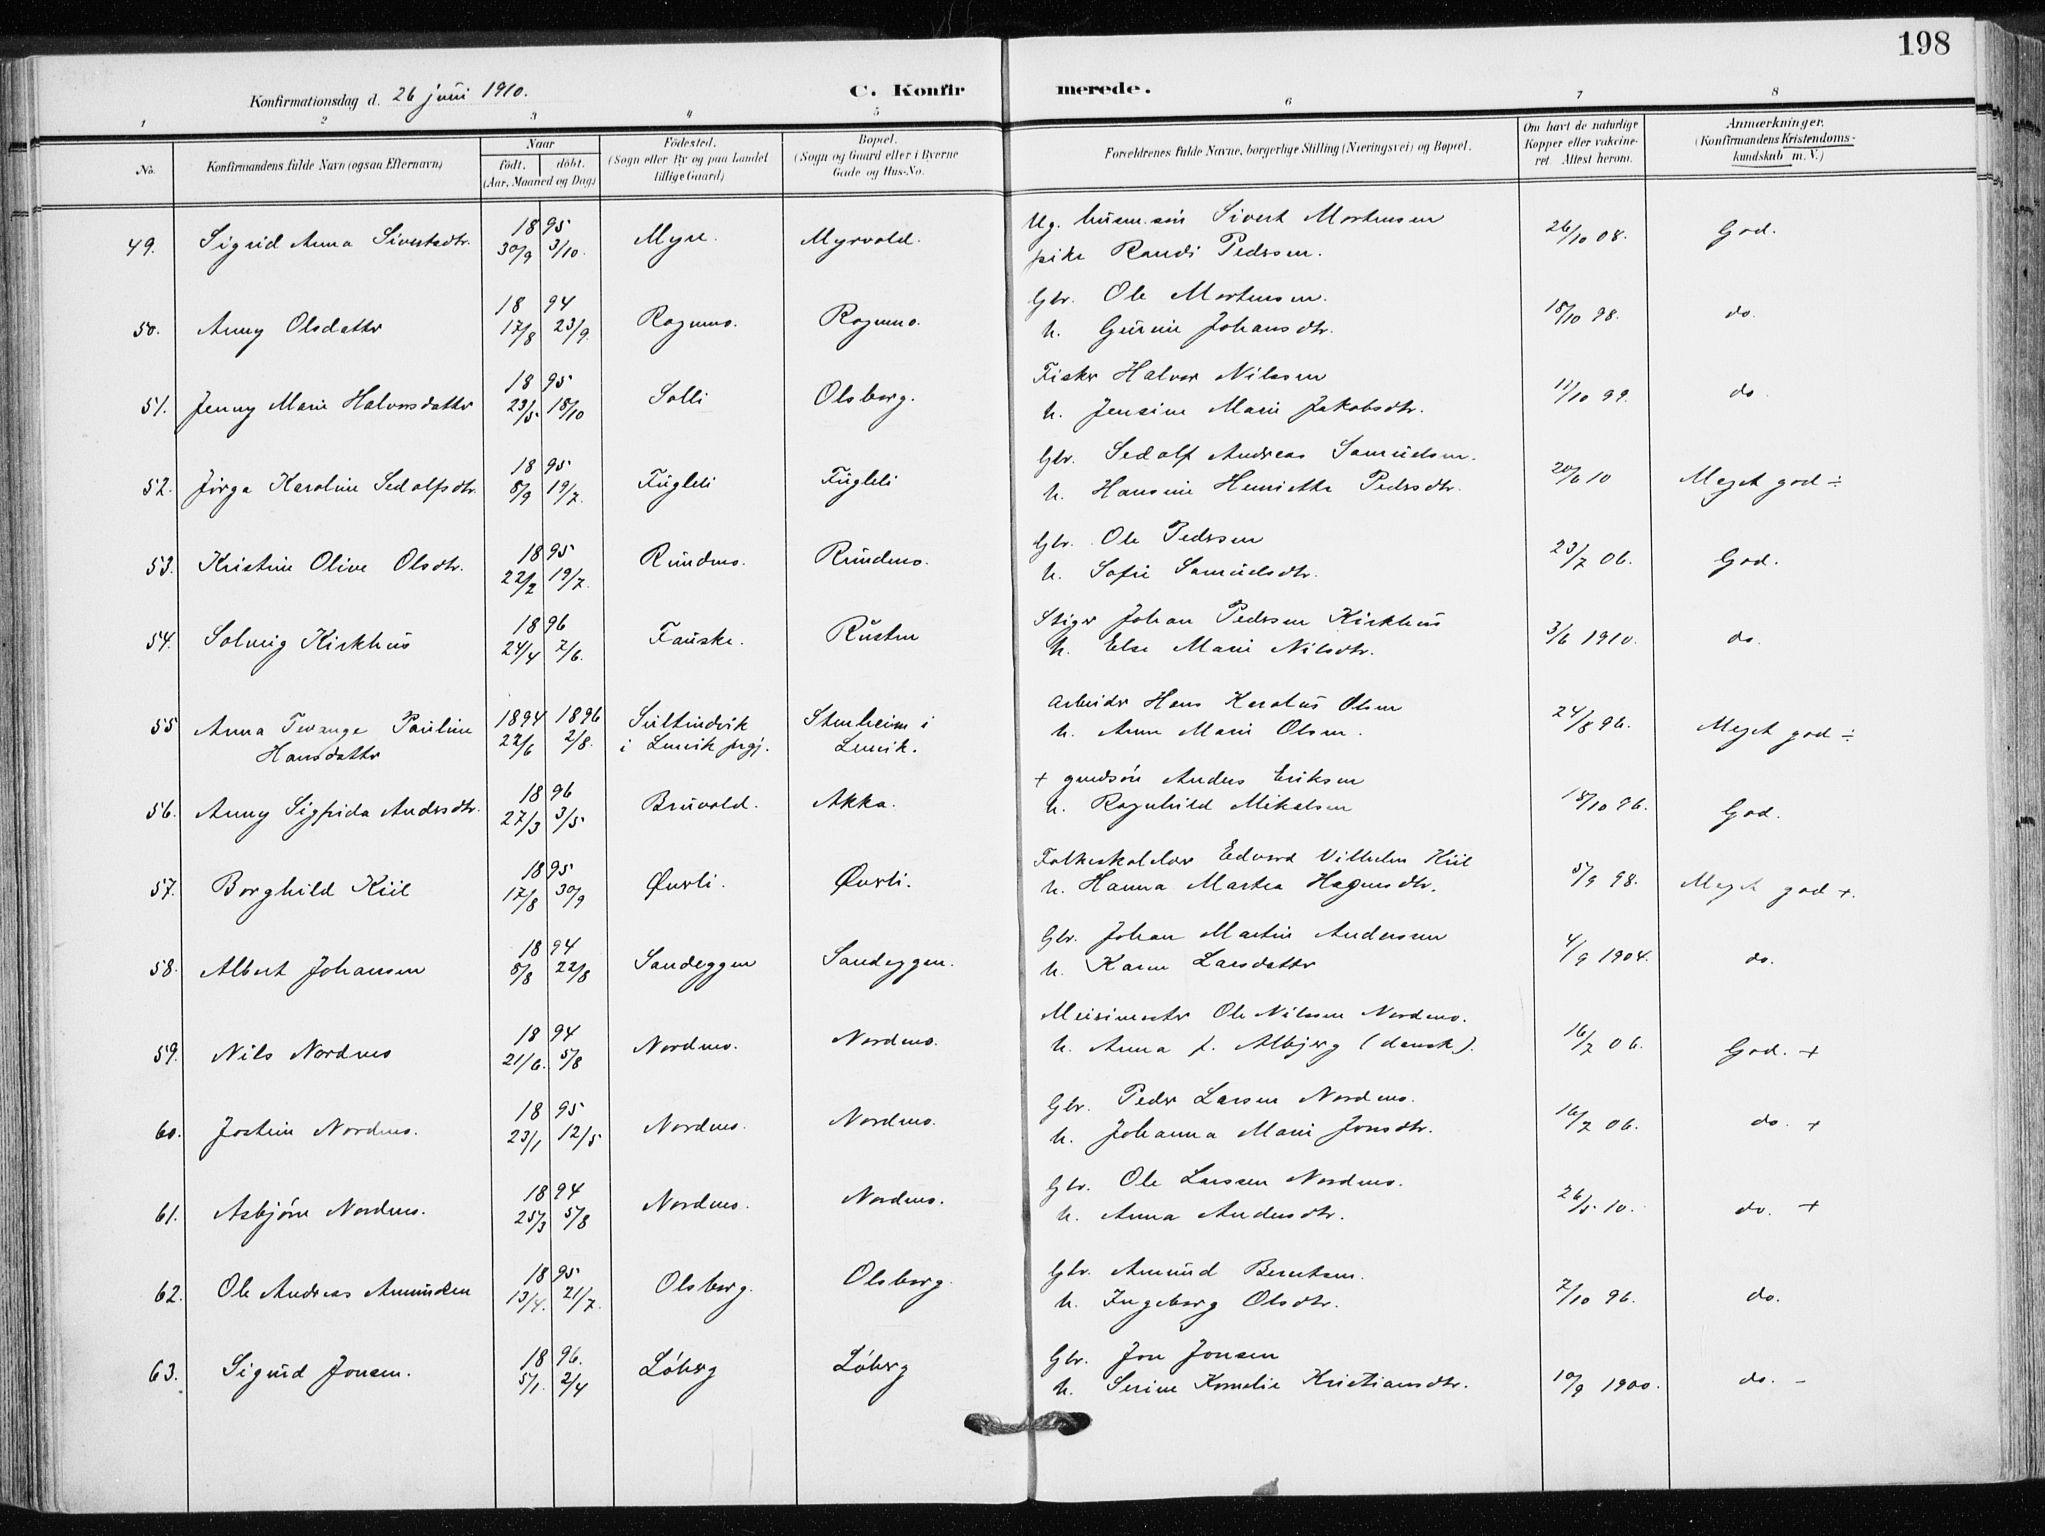 198
Konfirmationsdag d. 26 juni 1910.
C. Konfirmerede.
1 2 3 4 5 6 7 8
No. Konfirmandens fulde Navn (ogsaa Efternavn) Naar født. døbt. (Aar, Maaned og Dag) Fødested. (Sogn eller By og paa Landet tillige Gaard) Bopæl. (Sogn og Gaard eller i Byerne Gade og Hus-No. Forældrenes fulde Navne, borgerlige Stilling (Næringsvei) og Bopæl. Om havt de naturlige Kopper eller vakcineret. Attest herom. Anmærkninger. (Konfirmandens Kristendomskundskab m. V.)
49. Sigrid Anna Sivertsdtr. 1895 30/9 3/10. Myre. Myrvold. Ug. husm. søn Sivert Mortensen
pike Randi Pedersen. 26/10 08. God.
50. Anny Olsdatter 1894 17/8 23/9. Rognmo. Rognmo. Gbr. Ole Mortensen.
h. Gurine Johansdtr. 18/10 98. do.
51. Jenny Marie Halvorsdatter 1895 23/5 18/10 Solli Olsborg. Fisker Halvor Nilssen
h. Jensine Marie Jakobsdtr. 11/10 99. do.
52. Jørga Karoline Sedolfsdtr. 1895 8/9 19/7. Fugleli Fugleli Gbr. Sedolf Andreas Samuelsen.
h. Hansine Henriette Pedersdtr. 20/6 10 Meget god ÷
53. Kristine Olive Olsdtr. 1895 22/2 19/7. Rundmo. Rundmo. Gbr. Ole Pedersen
h. Sofie Samuelsdtr. 23/7 06. God.
54. Solveig Kirkhus 1896 24/4 7/6. Fauske. Rusten Stiger Johan Pedersen Kirkhus
h. Else Marie Nilsdtr. 3/6 1910. do.
55 Anna Pauline
Hansdatter 1894 22/6 1896 2/8. Sultindvik
i Lenvik prgj. Stenheim i
Lenvik. Arbeider Hans Keratus Olsen
h. Anne Marie Olsen. 24/8 96. Meget god ÷
56. Anny Sigfrida Andersdtr. 1896 27/3 3/5 Bruvold. Akka. + gmdsøn Anders Eriksen
h. Ragnhild Mikalsen 18/10 96. God.
57. Borghild Kiil 1895 17/8 30/9 Øverli. Øverli. Folkeskolelær Edvard Vilhelm Kiil
h. Hanna Martea Hagensdtr. 5/9 98. Meget god +.
58. Albert Johansen 1894 8/8 22/8 Sandeggen Sandeggen. Gbr. Johan Martin Andersen
h. Karen Larsdatter 4/9 1904. do.
59. Nils Nordmo 1894 21/6. 5/8 Nordmo. Nordmo. Meierimester Ole Nilssen Nordmo.
h. Anna f. Albjerg (dansk). 16/7 06. God. +
60. Jostein Nordmo. 1895 23/1 12/5 Nordmo. Nordmo. Gbr. Peder Larsen Nordmo.
h. Johanna Marie Jonsdtr. 16/7 06. do. +
61. Asbjørn Nordmo. 1894 25/3 5/8 Nordmo. Nordmo. Gbr. Ole Larssen Nordmo.
h. Anna Andersdtr. 26/5 10. do. +
62. Ole Andreas Amundsen 1895 13/4. 21/7. Olsborg. Olsborg. Gbr. Amund Berntsen.
h. Ingeborg Olsdtr. 7/10 96. do.
63. Sigurd Jonsen. 1896. 5/1. 2/4 Løberg Løberg Gbr. Jon Jonsen
h. Serine Kornelie Kristiansdtr. 10/9 1900. do. -